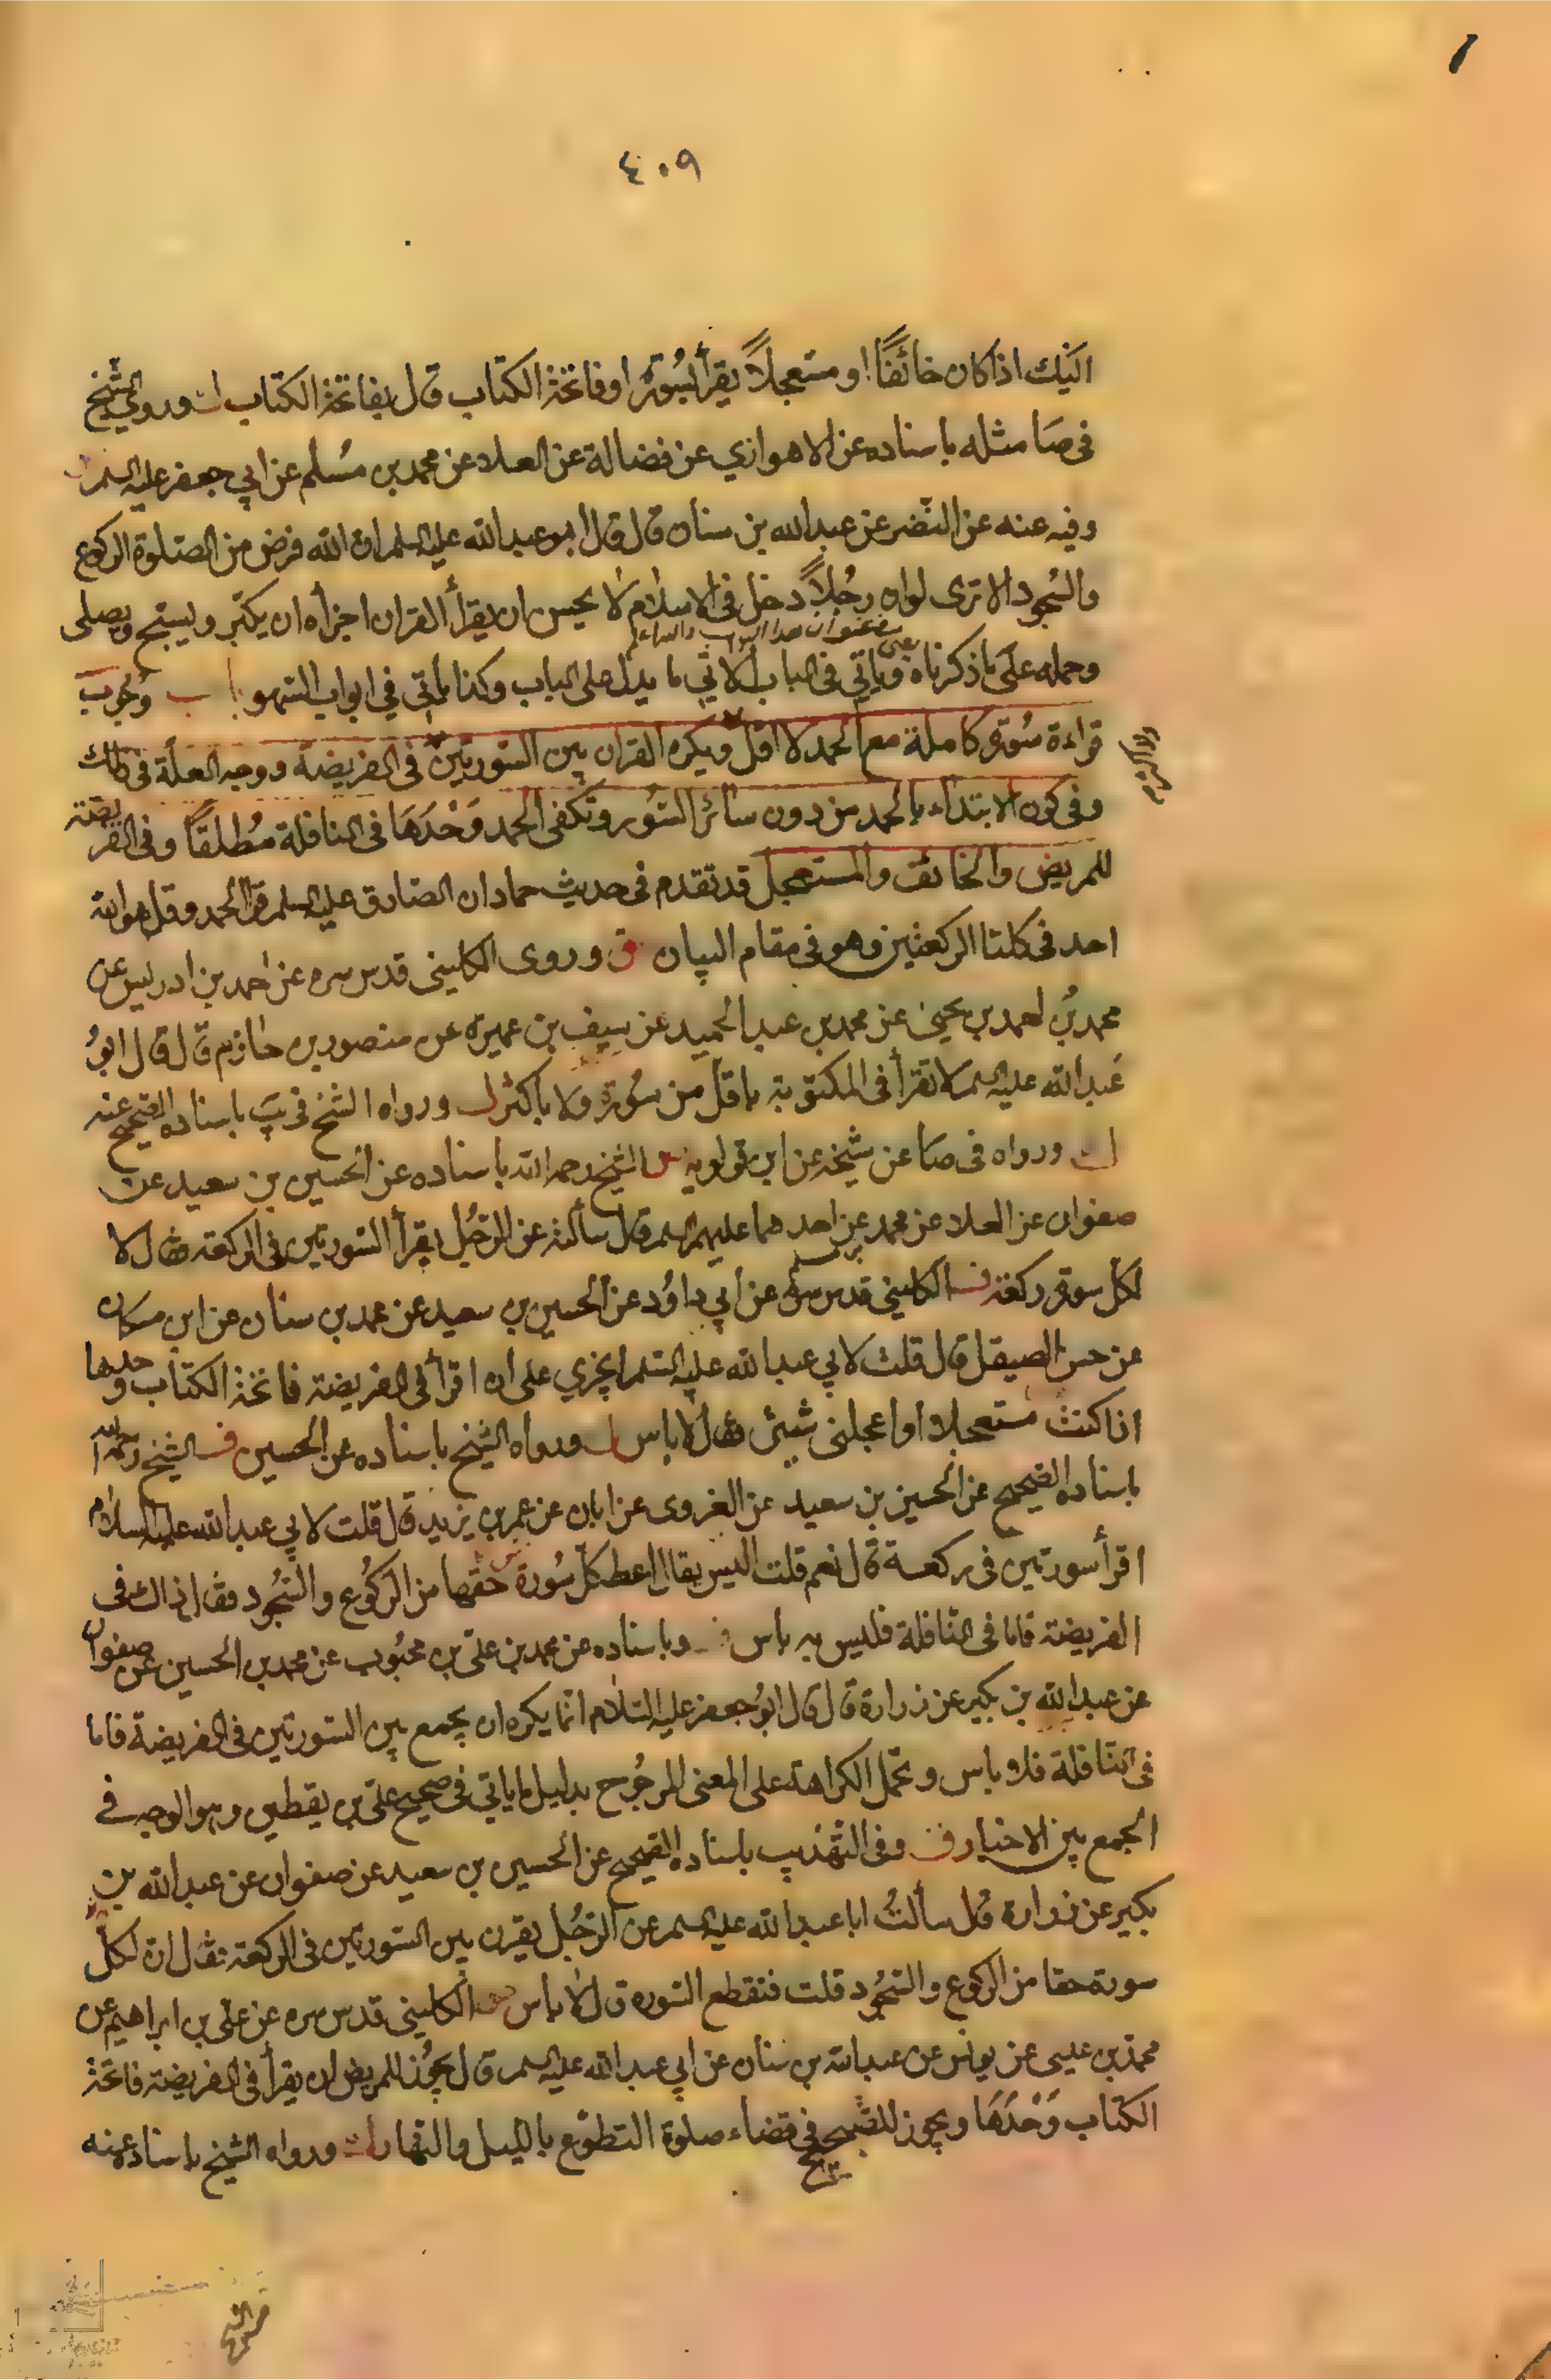 ٤٠٩
اليك اذا كان خائفًا او مستعجلاً يقرأ بسورة او فاتحة الكتاب قال بفاتحة الكتاب وروى الشيخ
في صا مثله باسناده عن الاهوازي عن فضالة عن العلا عن محمد بن مسلم عن ابي جعفر عليه السلم
وفيه عنه عن النضر عن عبد الله بن سنان قال قال ابو عبد الله عليه السلم ان الله فرض من الصلوة الركوع
والسجود الا ترى لو ان رجلاً دخل في الاسلام لا يحسن ان يقرأ القران اجزأه ان يكبر ويسبح ويصلى
وحمله على ما ذكرناه وياتي في الباب الاتي ما يدل على الباب وكذا ياتي في ابواب السهو ب وجوب
قراءة سورة كاملة مع الحمد لا اقل ويكره القران بين السورتين في الفريضة ووجه العلة في ذلك
وفي كون الابتداء بالحمد من دون سائر السور وتكفى الحمد وَحْدَهَا في النافلة مُطلقًا وفي الفريضة
للمريض والخائف والمستعجل قد تقدم في حديث حماد ان الصادق عليه السلم قرا الحمد وقل هو الله
احد في كلتا الركعتين وهو في مقام البيان ق وروى الكليني قدس سره عن احمد بن ادريس عن
محمد بن احمد بن يحيى عن محمد بن عبد الحميد عن سيف بن عميرة عن منصور بن حازم قال قال ابو
عبد الله عليه السلم لا تقرأ في المكتوبة باقل من سورة ولا باكثر ورواه الشيخ في يب باسناده الصحيح عنه
ورواه في صا عن شيخه عن ابن قولويه الشيخ رحمه الله باسناده عن الحسين بن سعيد عن
صفوان عن العلا عن محمد عن احدهما عليهم السلم قال سألته عن الرجل يقرأ السورتين في الركعة فقال لا
لكل سورة ركعة الكليني قدس سره عن ابي داوُد عن الحسين بن سعيد عن محمد بن سنان عن ابن مسكان
عن حسن الصيقل قال قلت لابي عبد الله عليه السلم ايجزي على ان اقرأ في الفريضة فاتحة الكتاب وحدها
اذا كنت مستعجلا او اعجلنى شيئ فقال لا باس ورواه الشيخ باسناده عن الحسين ف الشيخ رحمه الله
باسناده الصحيح عن الحسين بن سعيد عن الغروى عن ابان عن عمر بن يزيد قال قلت لابي عبد الله عليه السلام
اقرأ سورتين في ركعة قال نعم قلت اليس يقال اعط كل سورة حقها من الركوع والسجود فقال ذاك في
الفريضة فاما في النافلة فليس به باس وباسناده عن محمد بن على بن محبوب عن محمد بن الحسين عن صفوان
عن عبد الله بن بكير عن زرارة قال قال ابو جعفر عليه السلام انما يكره ان يجمع بين السورتين في الفريضة فاما
في النافلة فلا باس وتحمل الكراهة على المعنى المرجوح بدليل ما ياتي في صحيح على بن يقطين وهو الوجه في
الجمع بين الاخبار وفي التهذيب باسناده الصحيح عن الحسين بن سعيد عن صفوان عن عبد الله بن
بكير عن زرارة قال سألتُ ابا عبد الله عليه السلم عن الرجل يقرن بين السورتين في الركعة فقال ان لكل
سورة حقا من الركوع والسجود قلت فتقطع السورة قال لا باس الكليني قدس سره عن على بن ابراهيم عن
محمد بن عيسى عن يونس عن عبد الله بن سنان عن ابي عبد الله عليه السلم قال يجوز للمريض ان يقرأ في الفريضة فاتحة
الكتاب وَحْدَهَا ويجوز للصحيح في قضاء صلوة التطوع بالليل والنهار ورواه الشيخ باسناده عنه